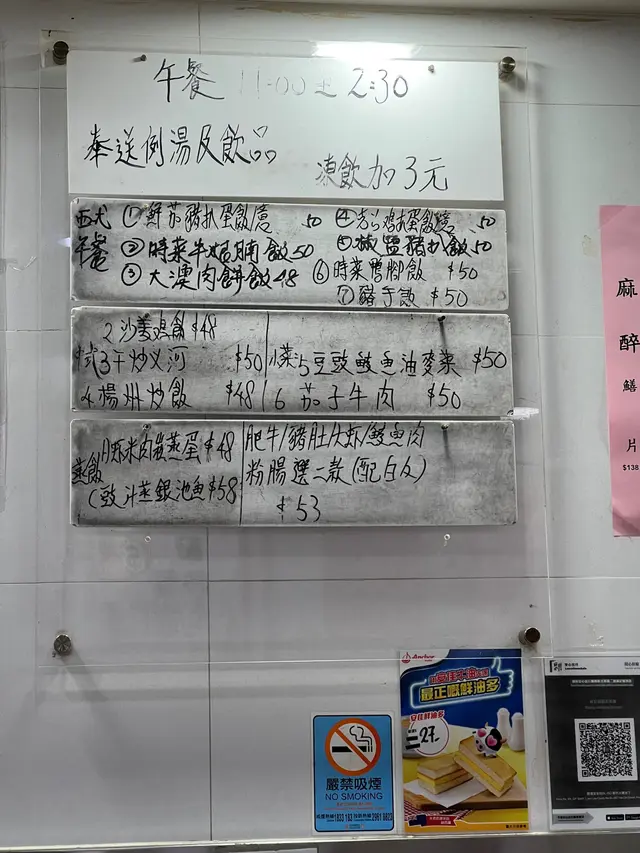 午餐 11:00 至 2:30
奉送例湯及飲品
凍飲加3元
西式午餐
① 鮮茄豬扒蛋飯 50
② 時菜牛𦟌腩飯 50
③ 大澳肉餅飯 48
50
⑤ 椒鹽豬扒飯 50
⑥ 時菜鴨腳飯 $50
⑦ 豬手飯 $50
2 沙姜鸡飯 $48
3 干炒乂河 $50
4 楊州炒飯 $48
小菜
5 豆豉鯪魚油麥菜 $50
6 茄子牛肉 $50
蒸飯
蝦米肉崧蒸蛋 $48
豉汁蒸銀池魚 $58
肥牛/豬肚/大虾/鯪魚肉
粉腸選二款(配白反)
$53
麻醉鱔片
$138
Anchor
最正嘅鮮油多
27
嚴禁吸煙
NO SMOKING
1833 183
2961 8823